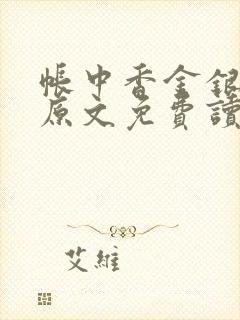 帳中香金銀
原文免費讀
艾維